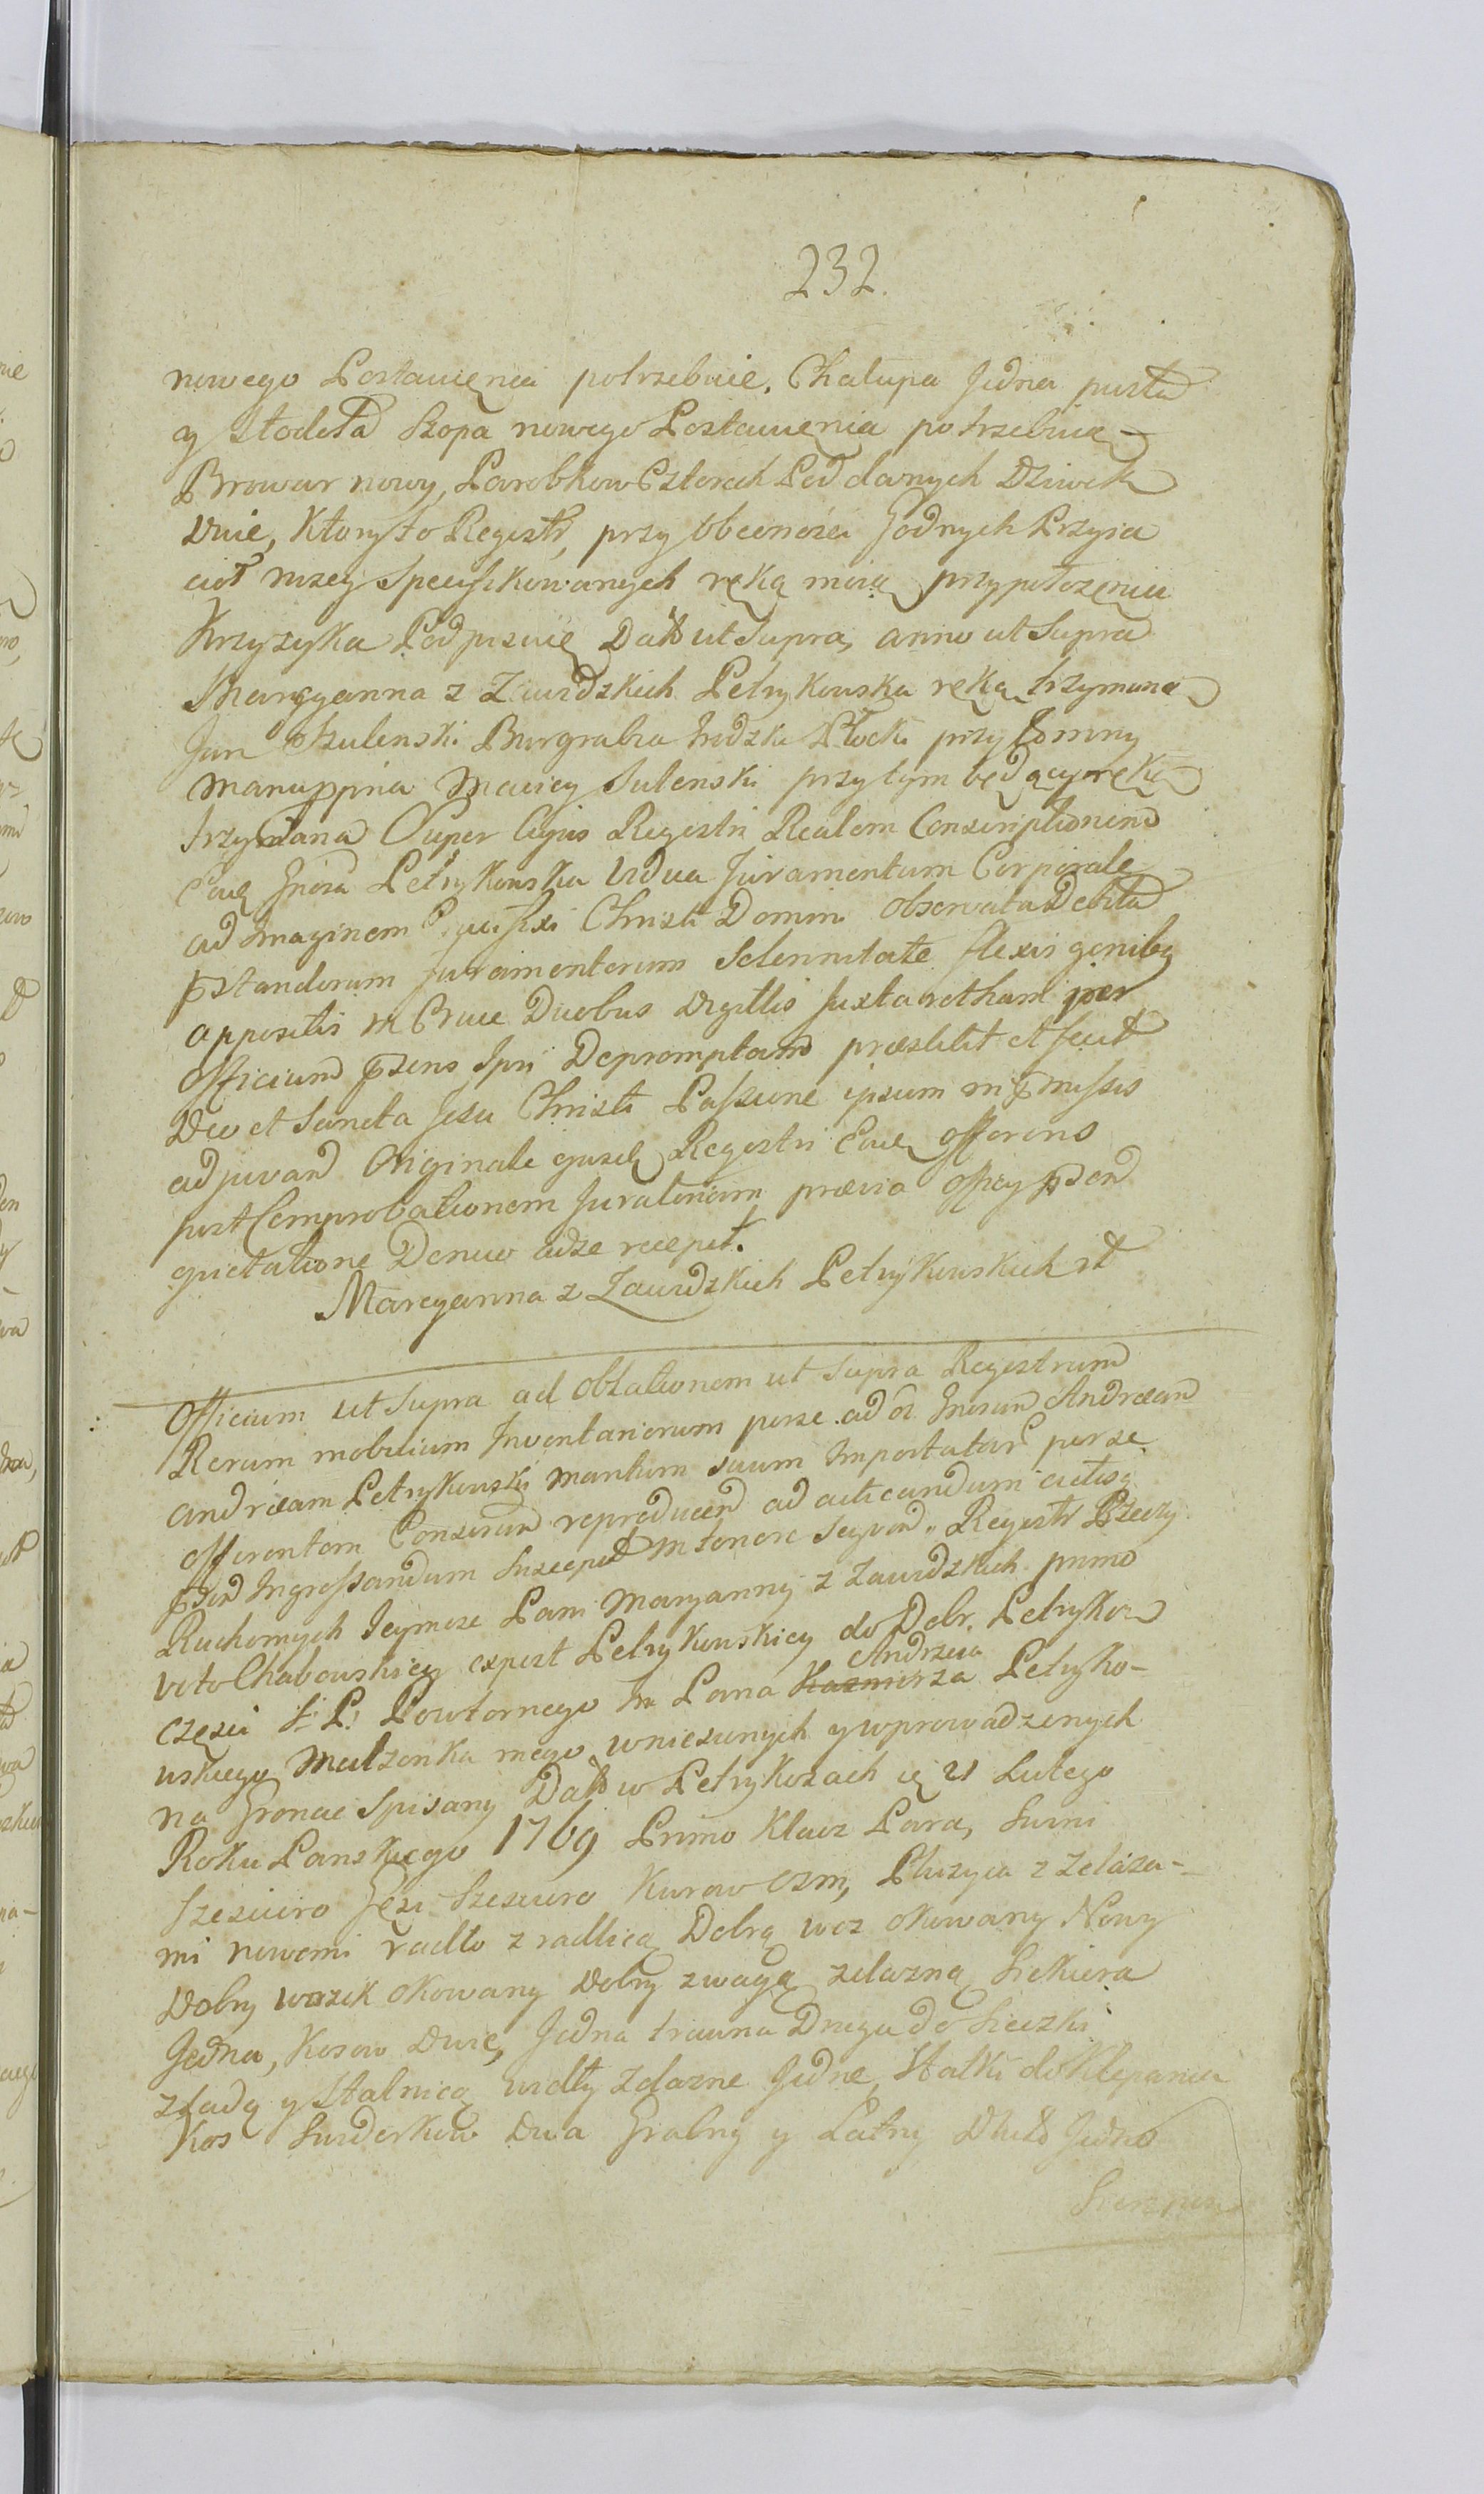 232.
nowego Postawienia potrzebuie, Chałupa Jedna pusta
y Stodoła Szopa nowego Postawienia potrzebuie
Browar nowy, Parobkow Czterech Poddanych Dziwek
Dwie, Ktory to Regestr, przy obecności Godnych Przyia
cioł nizey Specyfikowanych ręką moią przy położeniu
Krzyzyka Podpisuię Datt ut Supra, anno ut Supra
Maryanna z Zawidzkich Petrykowska ręką trzymaną
Jan Szulenski Burgrabia Grodzki Płocki przytomny
manuppria Maciey Sulenski przy tym będący ręką
trzymana Super Cujus Regestri Realem Conscriptionem
Eadem Gnosa Petrykowska Vidua Juramentum Corporale
ad Imaginem Crucifixi Christi Domini observata Debita
pstandorum Juramentorum Solennitate flexis genibus
appositis in Cruce Duobus Digitis Juxta rotham per
Officium psens Ipsi Depromptam præstitit et fecit
Deo et Sancta Jesu Christi Passione ipsam in pmissis
adjuvand Originale ejusdem Regestri Eadem offerens
post Comprobationem Juratoriam prævia Officy psen
quietatione Denuo ad se recepit.
Maryanna z Zawidzkich Petrykowskich
Officium ut Supra ad Oblationem ut Supra Regestrum
Rerum mobilium Inventariorum per se ad Gnosum Andream
Andream Petrykowski Maritum suum Importatar per se
offerentem Conscrum reproducen ad acticandum actisq
psen Ingrossandum Suscepit in tenore Seqven. Regestr Rzeczy
Ruchomych Jeymosc Pani Maryanny z Zawidzkich primo
voto Chabowskiey expost Petrykowskiey do Dobr, Petrykoz
Części S: P: Powtornego Im Pana Kazmirza Andrzeia Petryko-
wskiego Małzonka mego wniesionych y wprowadzonych
na Gruncie Spisany Datt w Petrykozach 21 Lutego
Roku Panskiego 1769 Primo Klacz Para, Swini
Szescioro Gęsi Szescioro Kurow Ośm, Płuzyca z Zelaza-
mi nowemi radło z radlicą Dobrą woz okowany Nowy
Dobry wozek okowany Dobry z wagą zelazną Siekiera
Jedna, Kosow Dwie, Jedna trawna Druga do Sieczki
z ladą y Stalnicą widły Zelazne Jedne, Statki do klepania
Kos Swiderkow Dwa Grabny y Łatny Dłuto Jedno